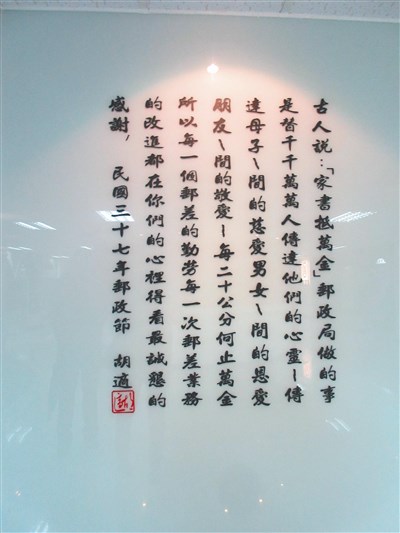 古人說:「家書抵萬金」郵政局做的事
是替千千萬萬人傳達他們的心靈~傳
達母子~間的慈愛男女~間的恩愛
朋友~間的敬愛~每二十公分何止萬金
所以每一個郵差的勤勞每一次郵差業務
的改進都在你們的心裡得着最誠懇的
感謝, 民國三十七年郵政節 胡適